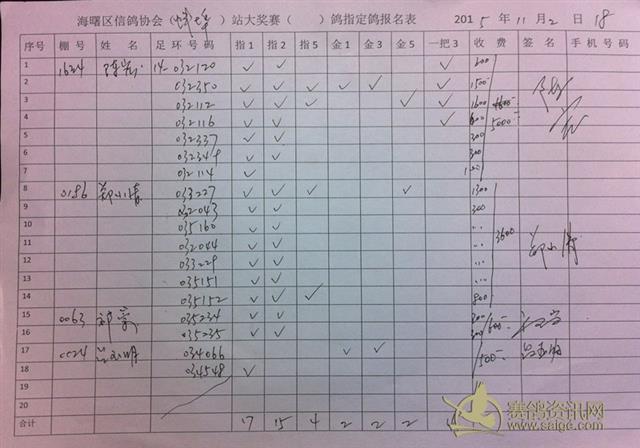 海曙区信鸽协会（ ）站大奖赛（ ）鸽指定鸽报名表 2015年11月2日 18
序号 棚号 姓名 足环号码 指1 指2 指5 金1 金3 金5 一把3 收费 签名 手机号码
1 1624 14-032120 ✓ ✓ ✓ 600
2 032350 ✓ ✓ ✓ ✓ ✓ ✓ 1500
3 032112 ✓ ✓ ✓ ✓ ✓ 1600
4 032116 ✓ ✓ ✓ 600 5000
5 032337 ✓ ✓ 300
6 032349 ✓ ✓ 300
7 032114 ✓ ✓
8 0186 郑小清 033227 ✓ ✓ ✓ ✓ 1300
9 032043 ✓ ✓ 300
10 035160 ✓ ✓ 3600
11 032044 ✓ ✓
12 033229 ✓ ✓
13 035151 ✓ ✓
14 035152 ✓ ✓ ✓ 800
15 0063 035234 ✓ ✓ 300
16 035235 ✓ ✓ 300 600
17 0024 034066 ✓ ✓
18 034548 ✓ 500
19
20
合计 17 15 4 2 2 2
赛鸽资讯网
www.saige.com